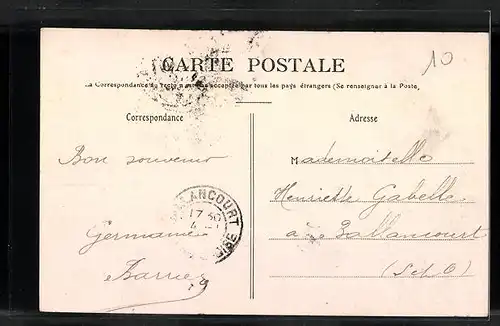 CARTE POSTALE
10
La Correspondance au recto n'est pas acceptée par tous les pays étrangers (Se renseigner à la Poste)
Correspondance
Adresse
Bon souvenir
Mademoiselle
Henriette Gabelle
LANCOURT
17
Germaine
à Ballancourt
OISE
Barrier
(S et O)